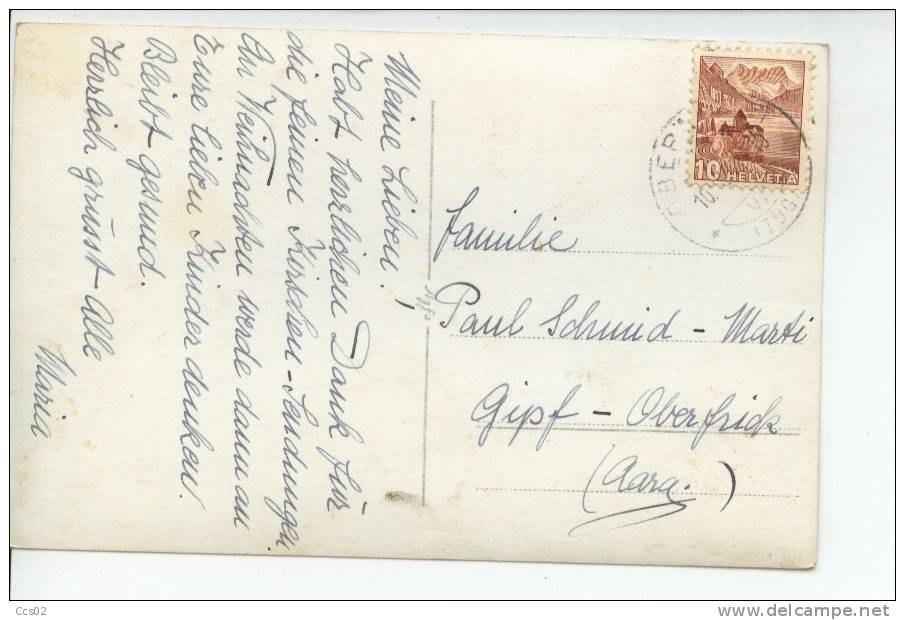 Meine Lieben!
Habt herzlichen Dank für
die feinen Kirschen-Sendungen.
An Weihnachten werde dann an
Eure lieben Kinder denken.
Bleibt gesund.
Herzlich grüsst Alle
Maria
Familie
Paul Schmid - Marti
Gipf - Oberfrick
(Aarg.)
10 HELVETIA
Ccs02
delcampe.net